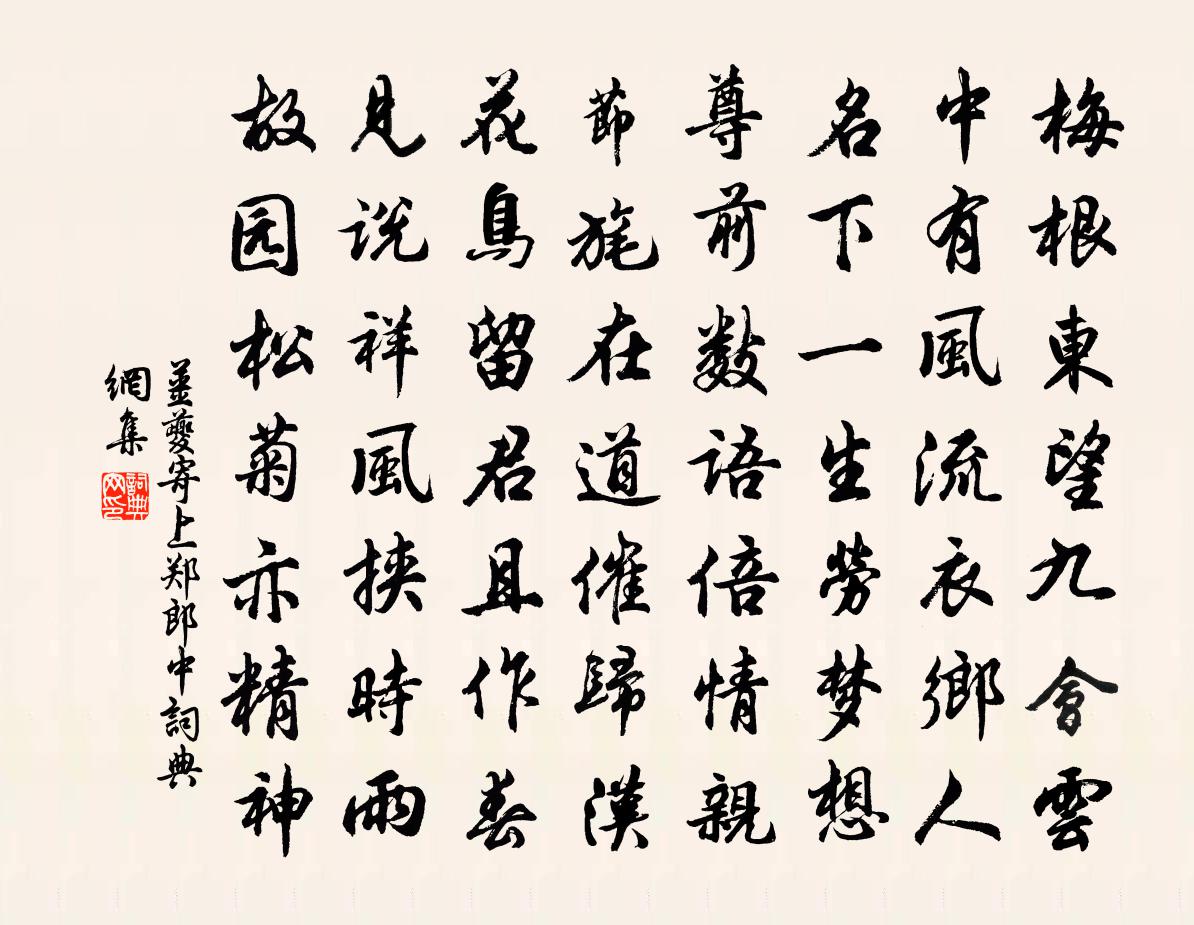 梅根東望九會雲
中有風流衣鄉人
名下一生勞梦想
尊前数語倍情親
節旄在道催歸漢
花鳥留君且作春
見说祥風挟時雨
故园松菊亦精神
薑夔寄上郑郎中詞典
網集
詞典
网印